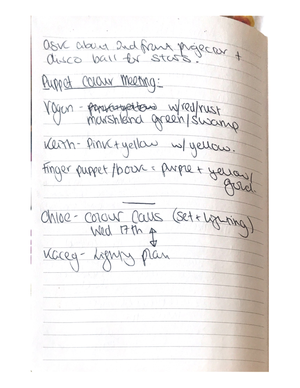 ask about 2nd front projector +
disco ball for stars.
Puppet Colour Meeting:
w/ red/rust
marshland green/swamp
Keith - Pink + yellow w/ yellow.
Finger puppet/book = purple + yellow/
gold.
Chloe - Colour Calls (set + lighting)
Wed 17th
Kacey - Lighting plan